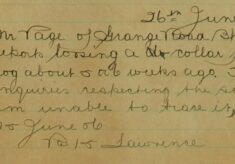 26th June
Mr Page of Grange Road Sh
reports lossing a collar
og about 5 or 6 weeks ago. I
nquiries respecting the s
am unable to trace it,
June 06
PC 15 Lawrence